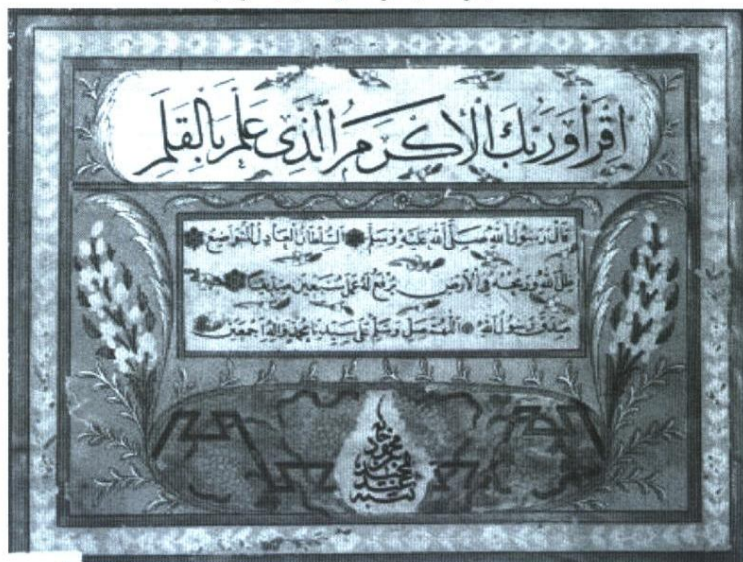 اقرأ وربك الاكرم الذى علم بالقلم
قال رسول الله صلى الله عليه وسلم السلطان العادل المتواضع
ظل الله ورمحه فى الارض يرفع له عمل سبعين صديقا
صدق رسول الله اللهم صل وسلم على سيدنا محمد واله اجمعين
كتبه محمود خان